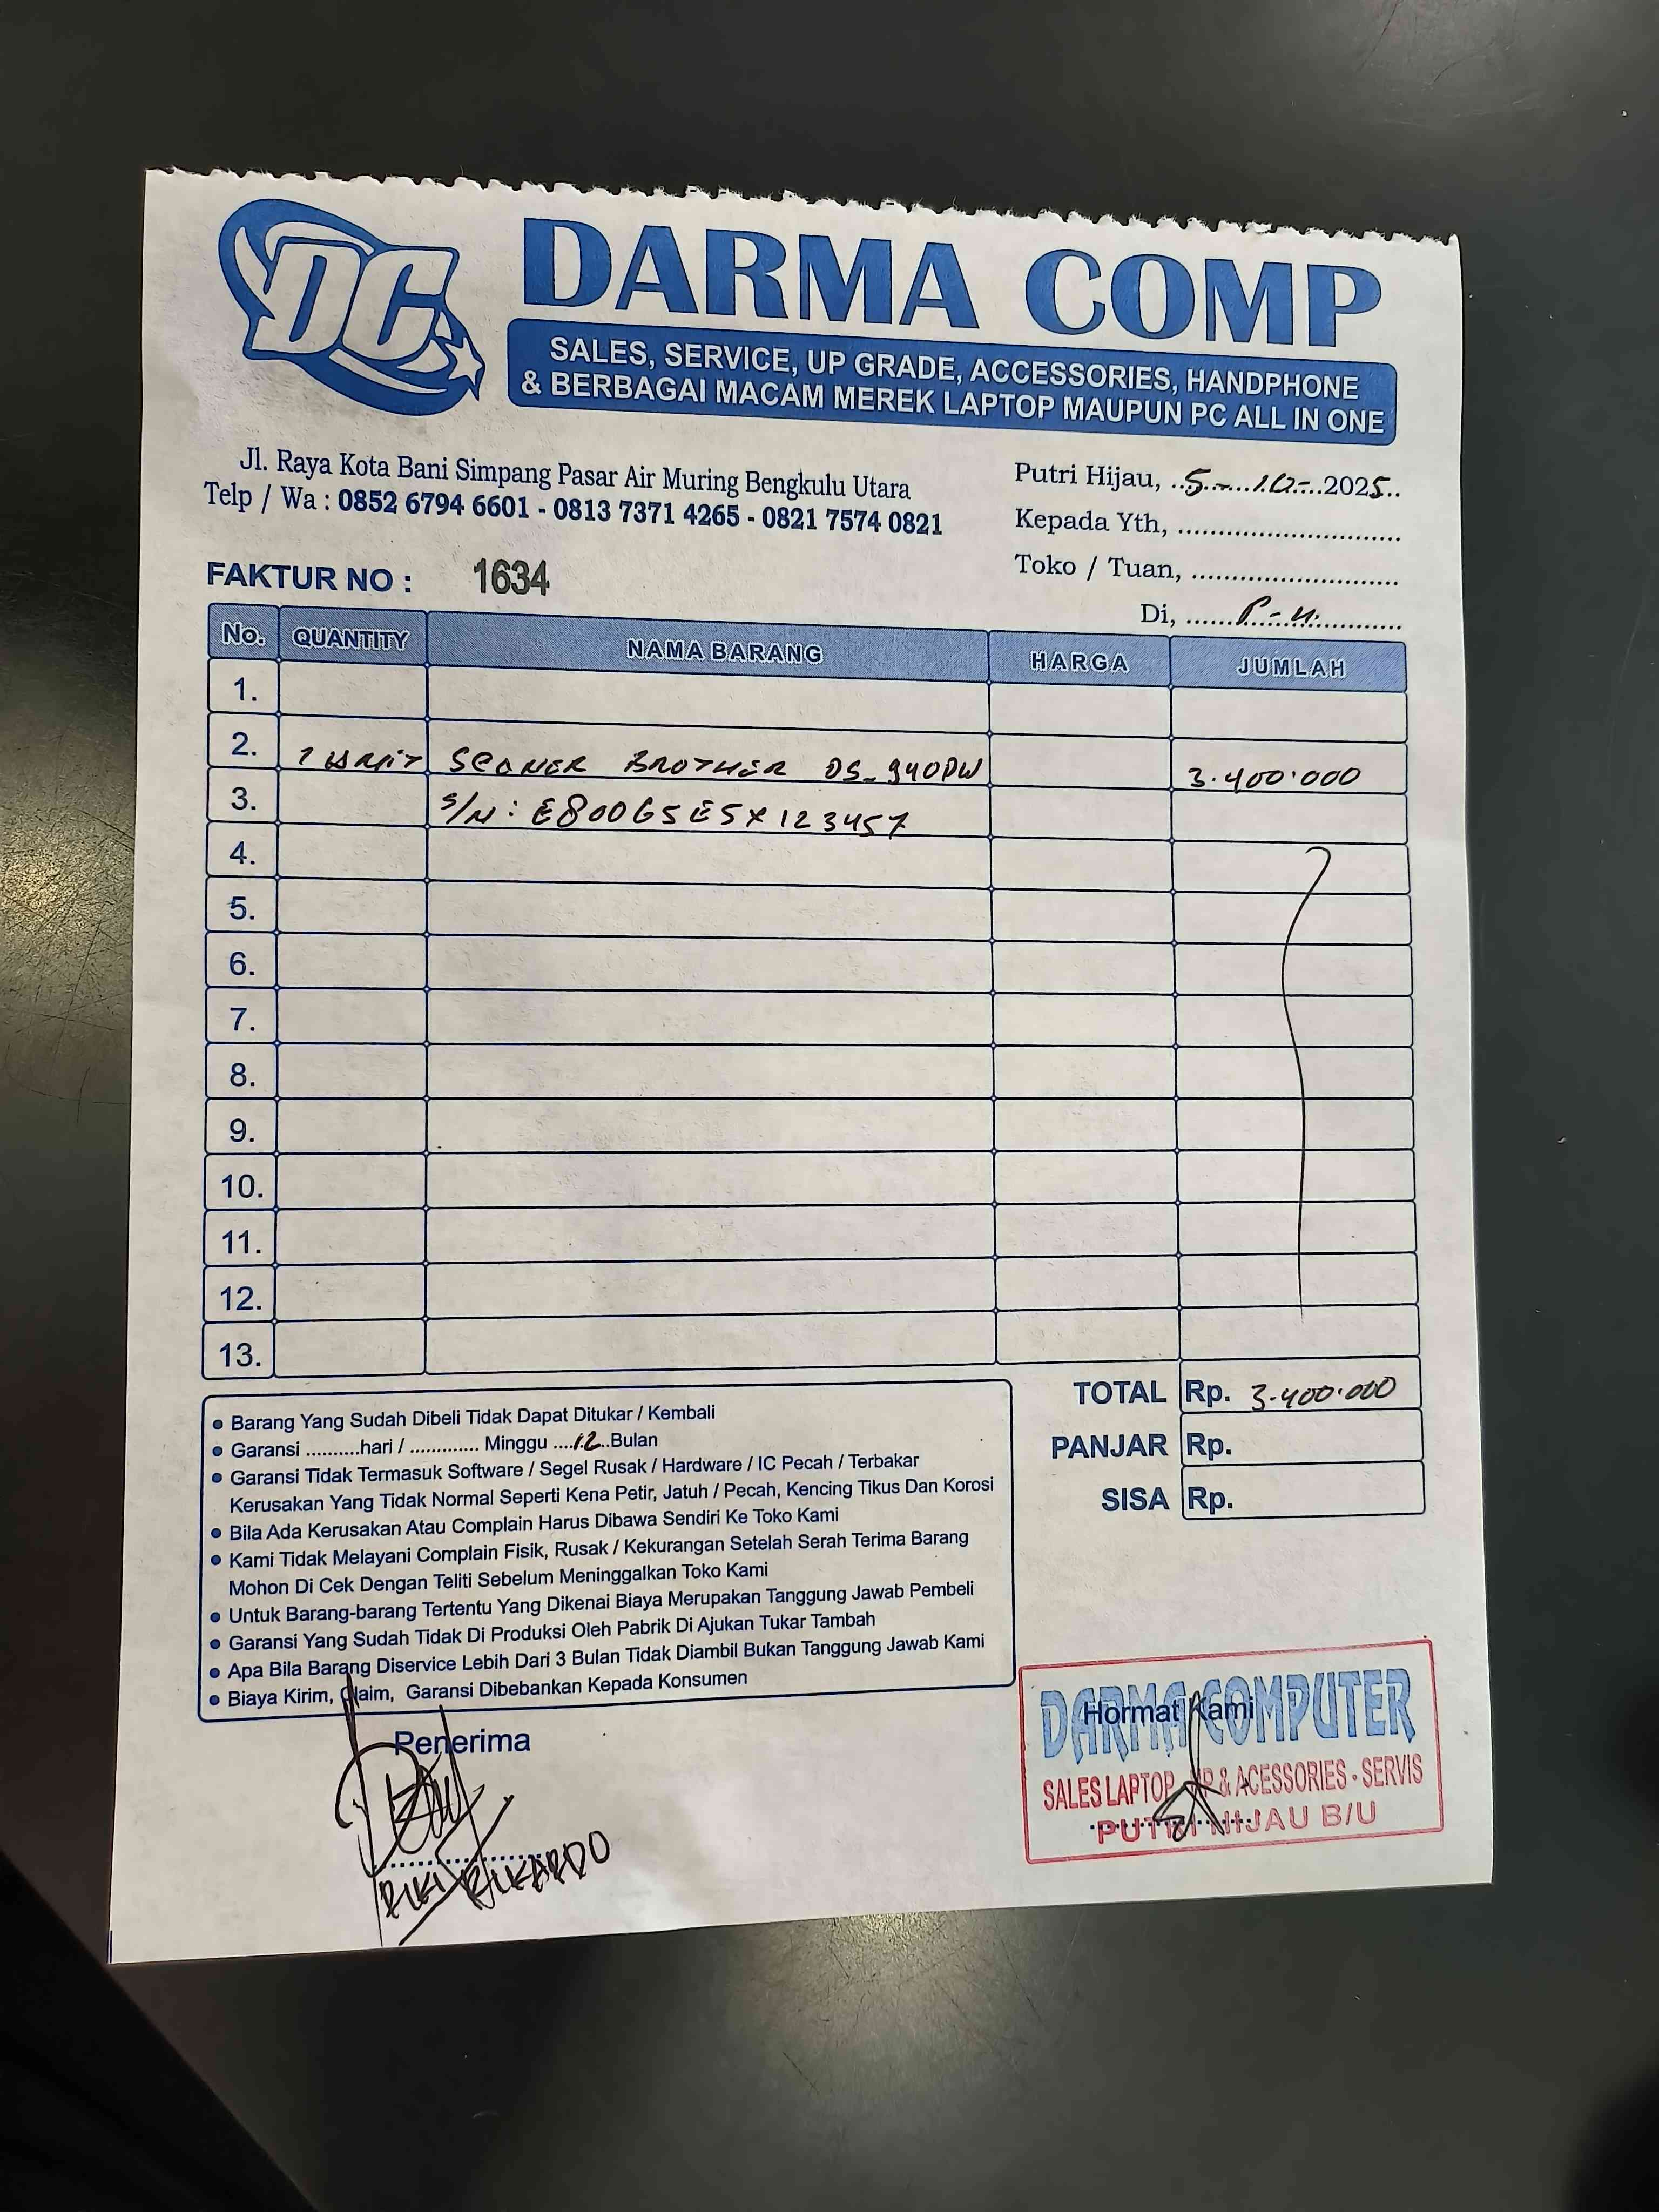 DC
DARMA COMP
SALES, SERVICE, UP GRADE, ACCESSORIES, HANDPHONE
& BERBAGAI MACAM MEREK LAPTOP MAUPUN PC ALL IN ONE
Jl. Raya Kota Bani Simpang Pasar Air Muring Bengkulu Utara
Telp / Wa : 0852 6794 6601 - 0813 7371 4265 - 0821 7574 0821
Putri Hijau, 5 - 10 - 2025
Kepada Yth, ..............................
Toko / Tuan, ............................
Di, P-H
FAKTUR NO : 1634
No. QUANTITY NAMA BARANG HARGA JUMLAH
1.
2. 1 UNIT SCANER BROTHER DS_940DW 3.400.000
3. S/N : E80065E5X123457
4.
5.
6.
7.
8.
9.
10.
11.
12.
13.
TOTAL Rp. 3.400.000
PANJAR Rp.
SISA Rp.
• Barang Yang Sudah Dibeli Tidak Dapat Ditukar / Kembali
• Garansi ..........hari / ............. Minggu ....12..Bulan
• Garansi Tidak Termasuk Software / Segel Rusak / Hardware / IC Pecah / Terbakar
Kerusakan Yang Tidak Normal Seperti Kena Petir, Jatuh / Pecah, Kencing Tikus Dan Korosi
• Bila Ada Kerusakan Atau Complain Harus Dibawa Sendiri Ke Toko Kami
• Kami Tidak Melayani Complain Fisik, Rusak / Kekurangan Setelah Serah Terima Barang
Mohon Di Cek Dengan Teliti Sebelum Meninggalkan Toko Kami
• Untuk Barang-barang Tertentu Yang Dikenai Biaya Merupakan Tanggung Jawab Pembeli
• Garansi Yang Sudah Tidak Di Produksi Oleh Pabrik Di Ajukan Tukar Tambah
• Apa Bila Barang Diservice Lebih Dari 3 Bulan Tidak Diambil Bukan Tanggung Jawab Kami
• Biaya Kirim, Claim, Garansi Dibebankan Kepada Konsumen
Penerima
RIKI RIKARDO
Hormat Kami
DARMA COMPUTER
SALES LAPTOP, HP & ACESSORIES - SERVIS
PUTRI HIJAU B/U